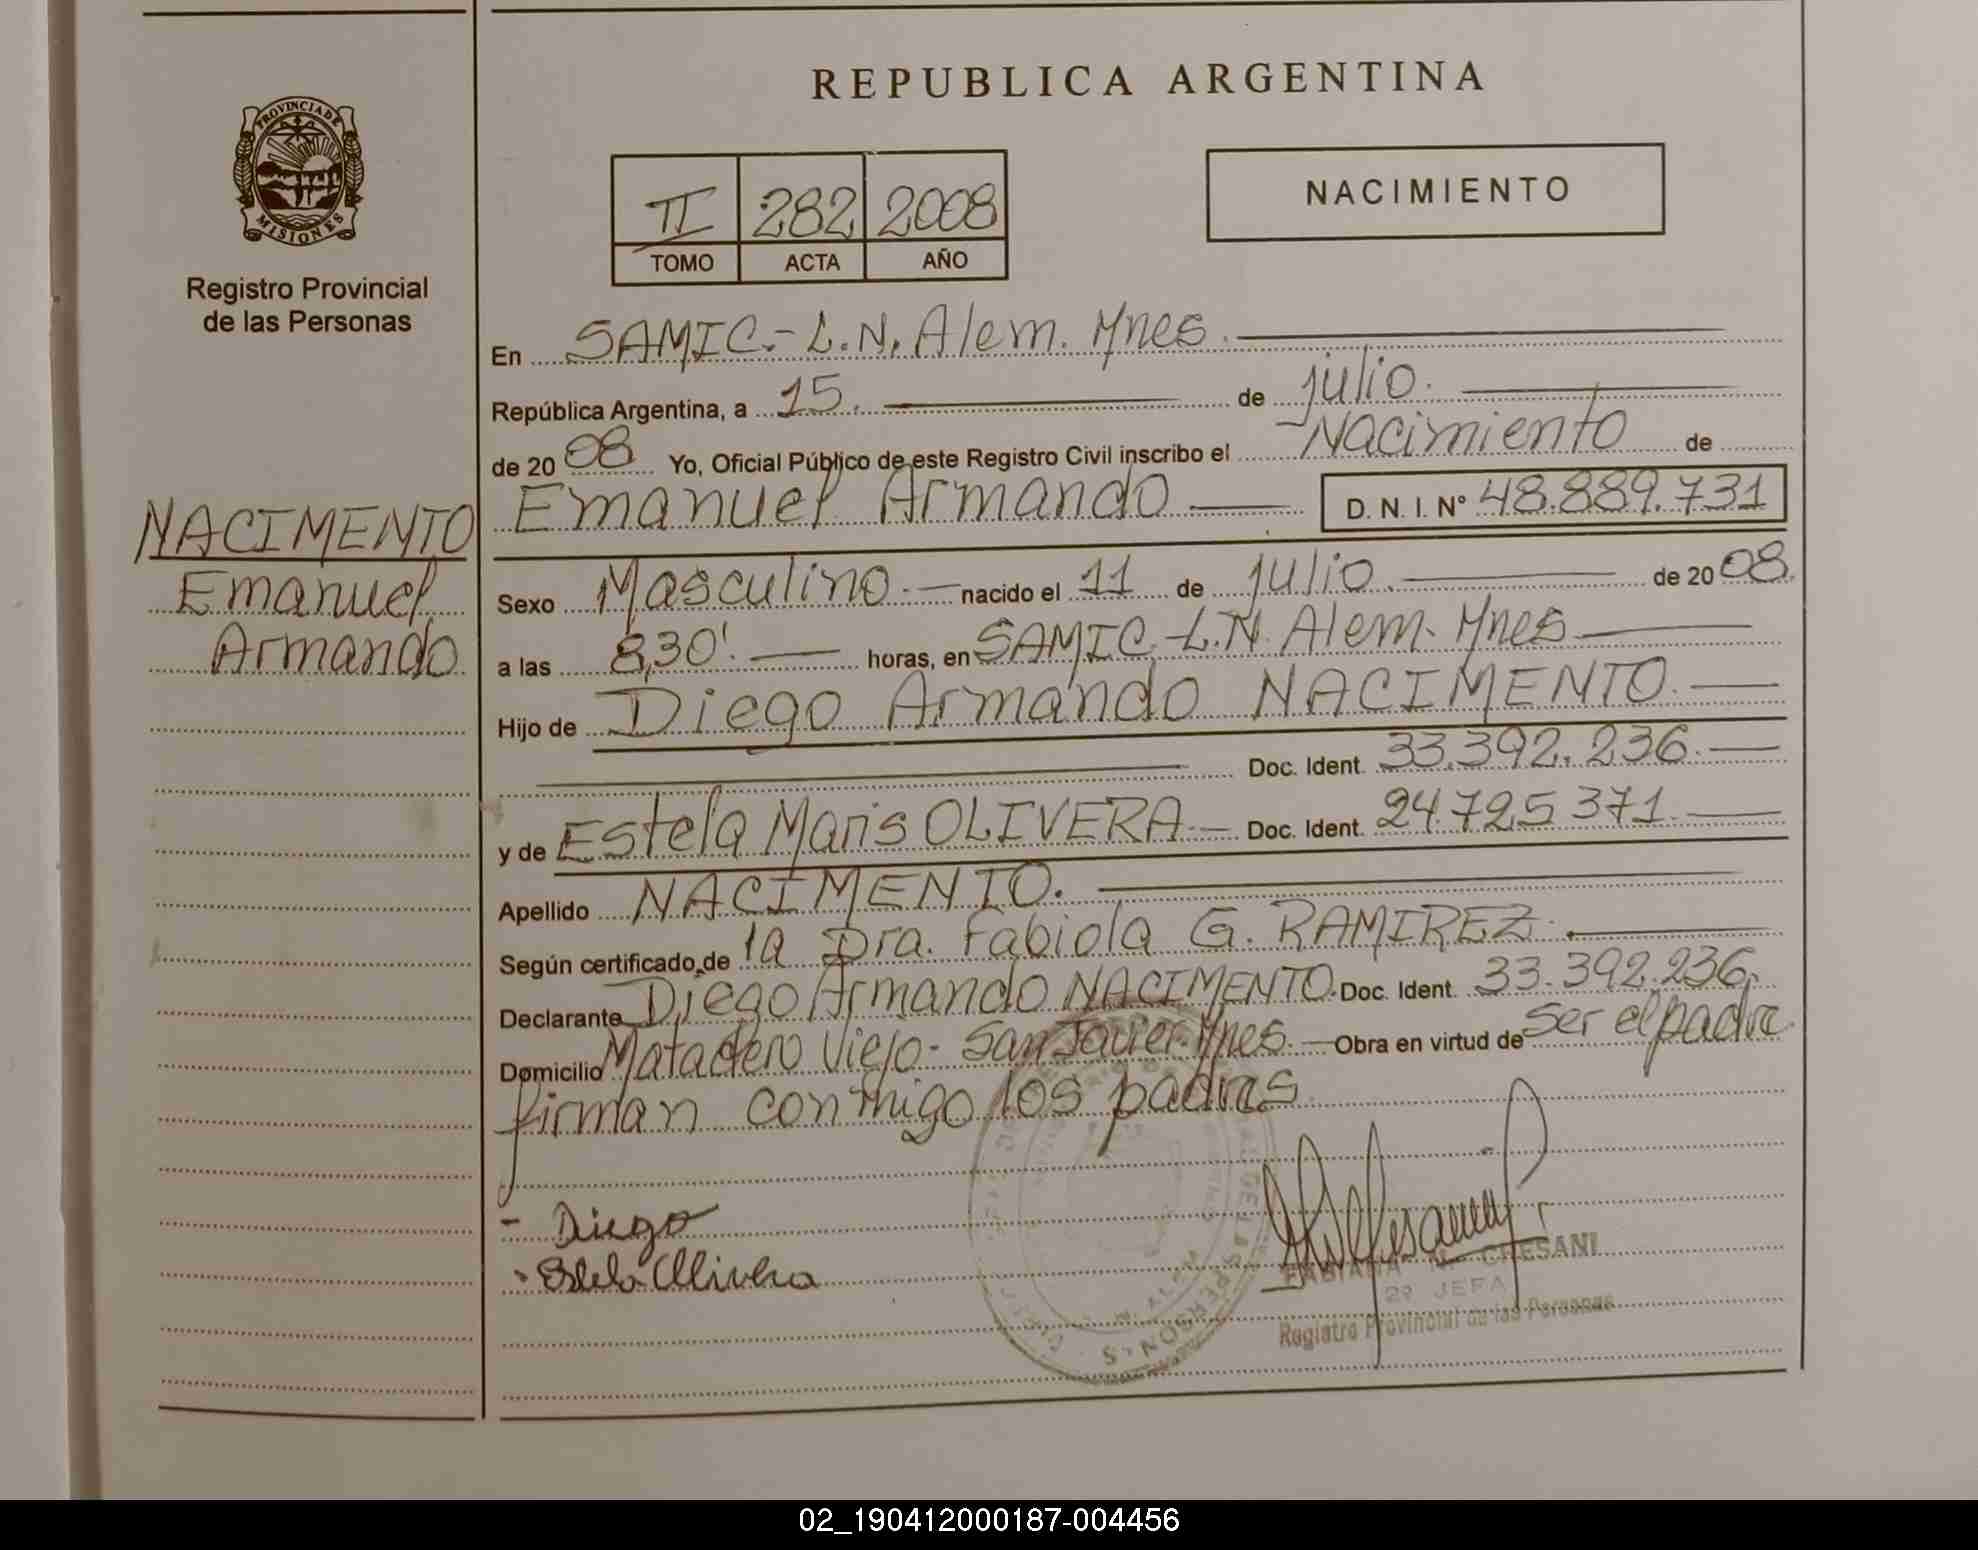 REPUBLICA ARGENTINA
PROVINCIA DE
MISIONES
Registro Provincial
de las Personas
II 282 2008
TOMO ACTA AÑO
NACIMIENTO
En SAMIC.- L.N. Alem. Mnes.
República Argentina, a 15. de julio.
de 2008 Yo, Oficial Público de este Registro Civil inscribo el Nacimiento de
Emanuel Armando D. N. I. Nº 48.889.731
NACIMENTO
Emanuel
Armando
Sexo Masculino. nacido el 11 de julio. de 2008.
a las 8,30'. horas, en SAMIC.-L.N. Alem. Mnes
Hijo de Diego Armando NACIMENTO.
Doc. Ident. 33.392.236.
y de Estela Maris OLIVERA. Doc. Ident. 24725371.
Apellido NACIMENTO.
Según certificado de la Dra. Fabiola G. RAMIREZ.
Declarante Diego Armando NACIMENTO. Doc. Ident. 33.392.236.
Domicilio Matadero Viejo- San Javier. Mnes. Obra en virtud de ser el padre.
firman conmigo los padres
- Diego
- Estela Olivera
FABIANA N. CRESANI
2º JEFA
Registro Provincial de las Personas
02_190412000187-004456